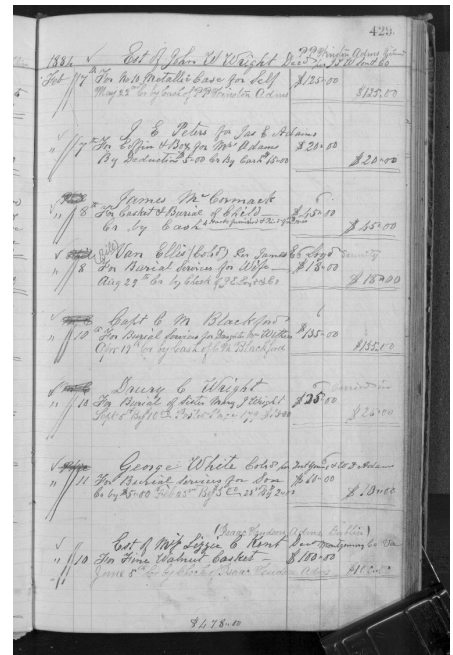 429
1884 Est of John W Wright Decd
Feb 7th For No 10 Metallic Case for Self $125.00
May 23rd Cr by Cash of P P Winston Adms $125.00
J E Peters for Jas E Adams
" 7th For Coffin & Box for Mrs Adams $20.00
By Deduction $5.00 Cr By Cash 15.00 $20.00
James McCormack
" 8th For Casket & Burial of Child $45.00
Cr. by Cash $45.00
Van Ellis (Cold) Per James E Loyd Security
" 8 For Burial Services for Wife $18.00
Aug 29th Cr by Check of J E Loyd & Co $18.00
Capt C M Blackford
" 10th For Burial Services for Daughter $135.00
Apr 17th Cr by Cash of C M Blackford $135.00
Drury C Wright
" 10 For Burial of Sister Mary J Wright $25.00
$25.00
George White Cold
" 11 For Burial Services for Son $10.00
$10.00
Est of Miss Lizzie C Kent Decd Montgomery Co Va
" 10 For Fine Walnut Casket $100.00
June 5th Cr by Check of Isaac Adms $100.00
$478.00